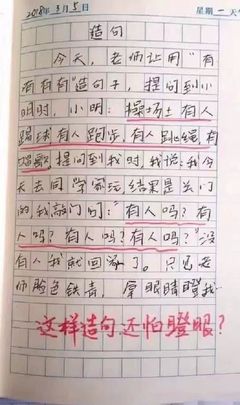 2018年3月5日 星期一 天
造句
今天，老师让用"有
有有有"造句子，提问到小
明时，小明：操场上有人
踢球有人跑步，有人跳绳，有
人唱歌，提问到我时我说：我今
天去同学家玩结果是关门
的我敲门问："有人吗？有
人吗？有人吗？有人吗？"没
有人我就回家了。只见老
师脸色铁青，拿眼睛瞪我
这样造句还怕瞪眼？